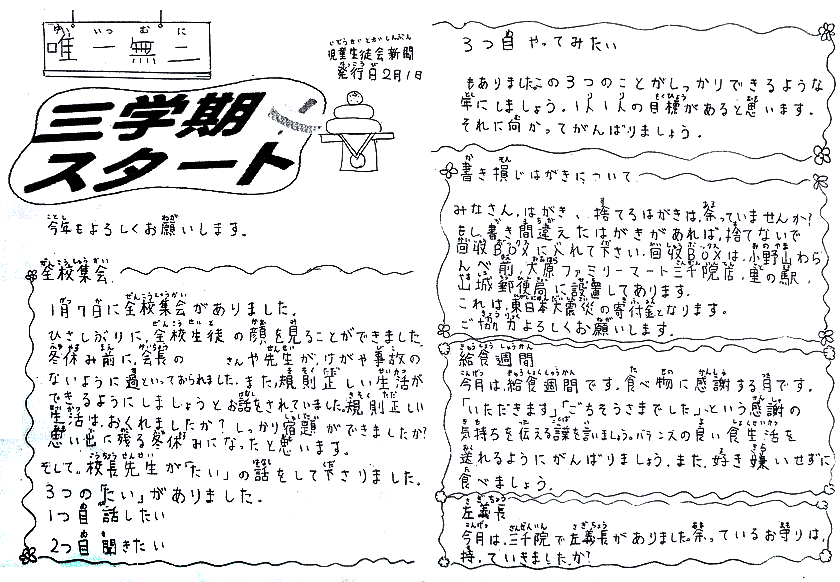 唯一無二
児童生徒会新聞
発行日2月1日
三学期
スタート
今年もよろしくお願いします。
全校集会
1月7日に全校集会がありました。
ひさしぶりに、全校生徒の顔を見ることができました。
冬休み前に、会長の さんや先生が、けがや事故の
ないように過といっておられました。また、規則正しい生活が
できるようにしましょうとお話をされていました。規則正しい
生活は、おくれましたか?しっかり宿題ができましたか?
思い出に残る冬休みになったと思います。
そして、校長先生が「たい」の話をして下さりました。
3つの「たい」がありました。
1つ目 話したい
2つ目 聞きたい
3つ目 やってみたい
もありました。この3つのことがしっかりできるような
年にしましょう。1人1人の目標があると思います。
それに向かってがんばりましょう。
書き損じはがきについて
みなさん、はがき、捨てるはがきは、余っていませんか?
もし書き間違えたはがきがあれば、捨てないで
回収BOXに入れて下さい。回収BOXは、小野山わら
んべ前、大原ファミリーマート三千院店、里の駅、
山城郵便局に設置してあります。
これは、東日本大震災の寄付金となります。
ご協力よろしくお願いします。
給食週間
今月は、給食週間です。食べ物に感謝する月です。
「いただきます」「ごちそうさまでした」、という感謝の
気持ちを伝える言葉を言いましょう。バランスの良い食生活を
送れるようにがんばりましょう。また、好き嫌いせずに
食べましょう。
左義長
今月は、三千院で左義長がありました。余っているお守りは、
持っていきましたか?